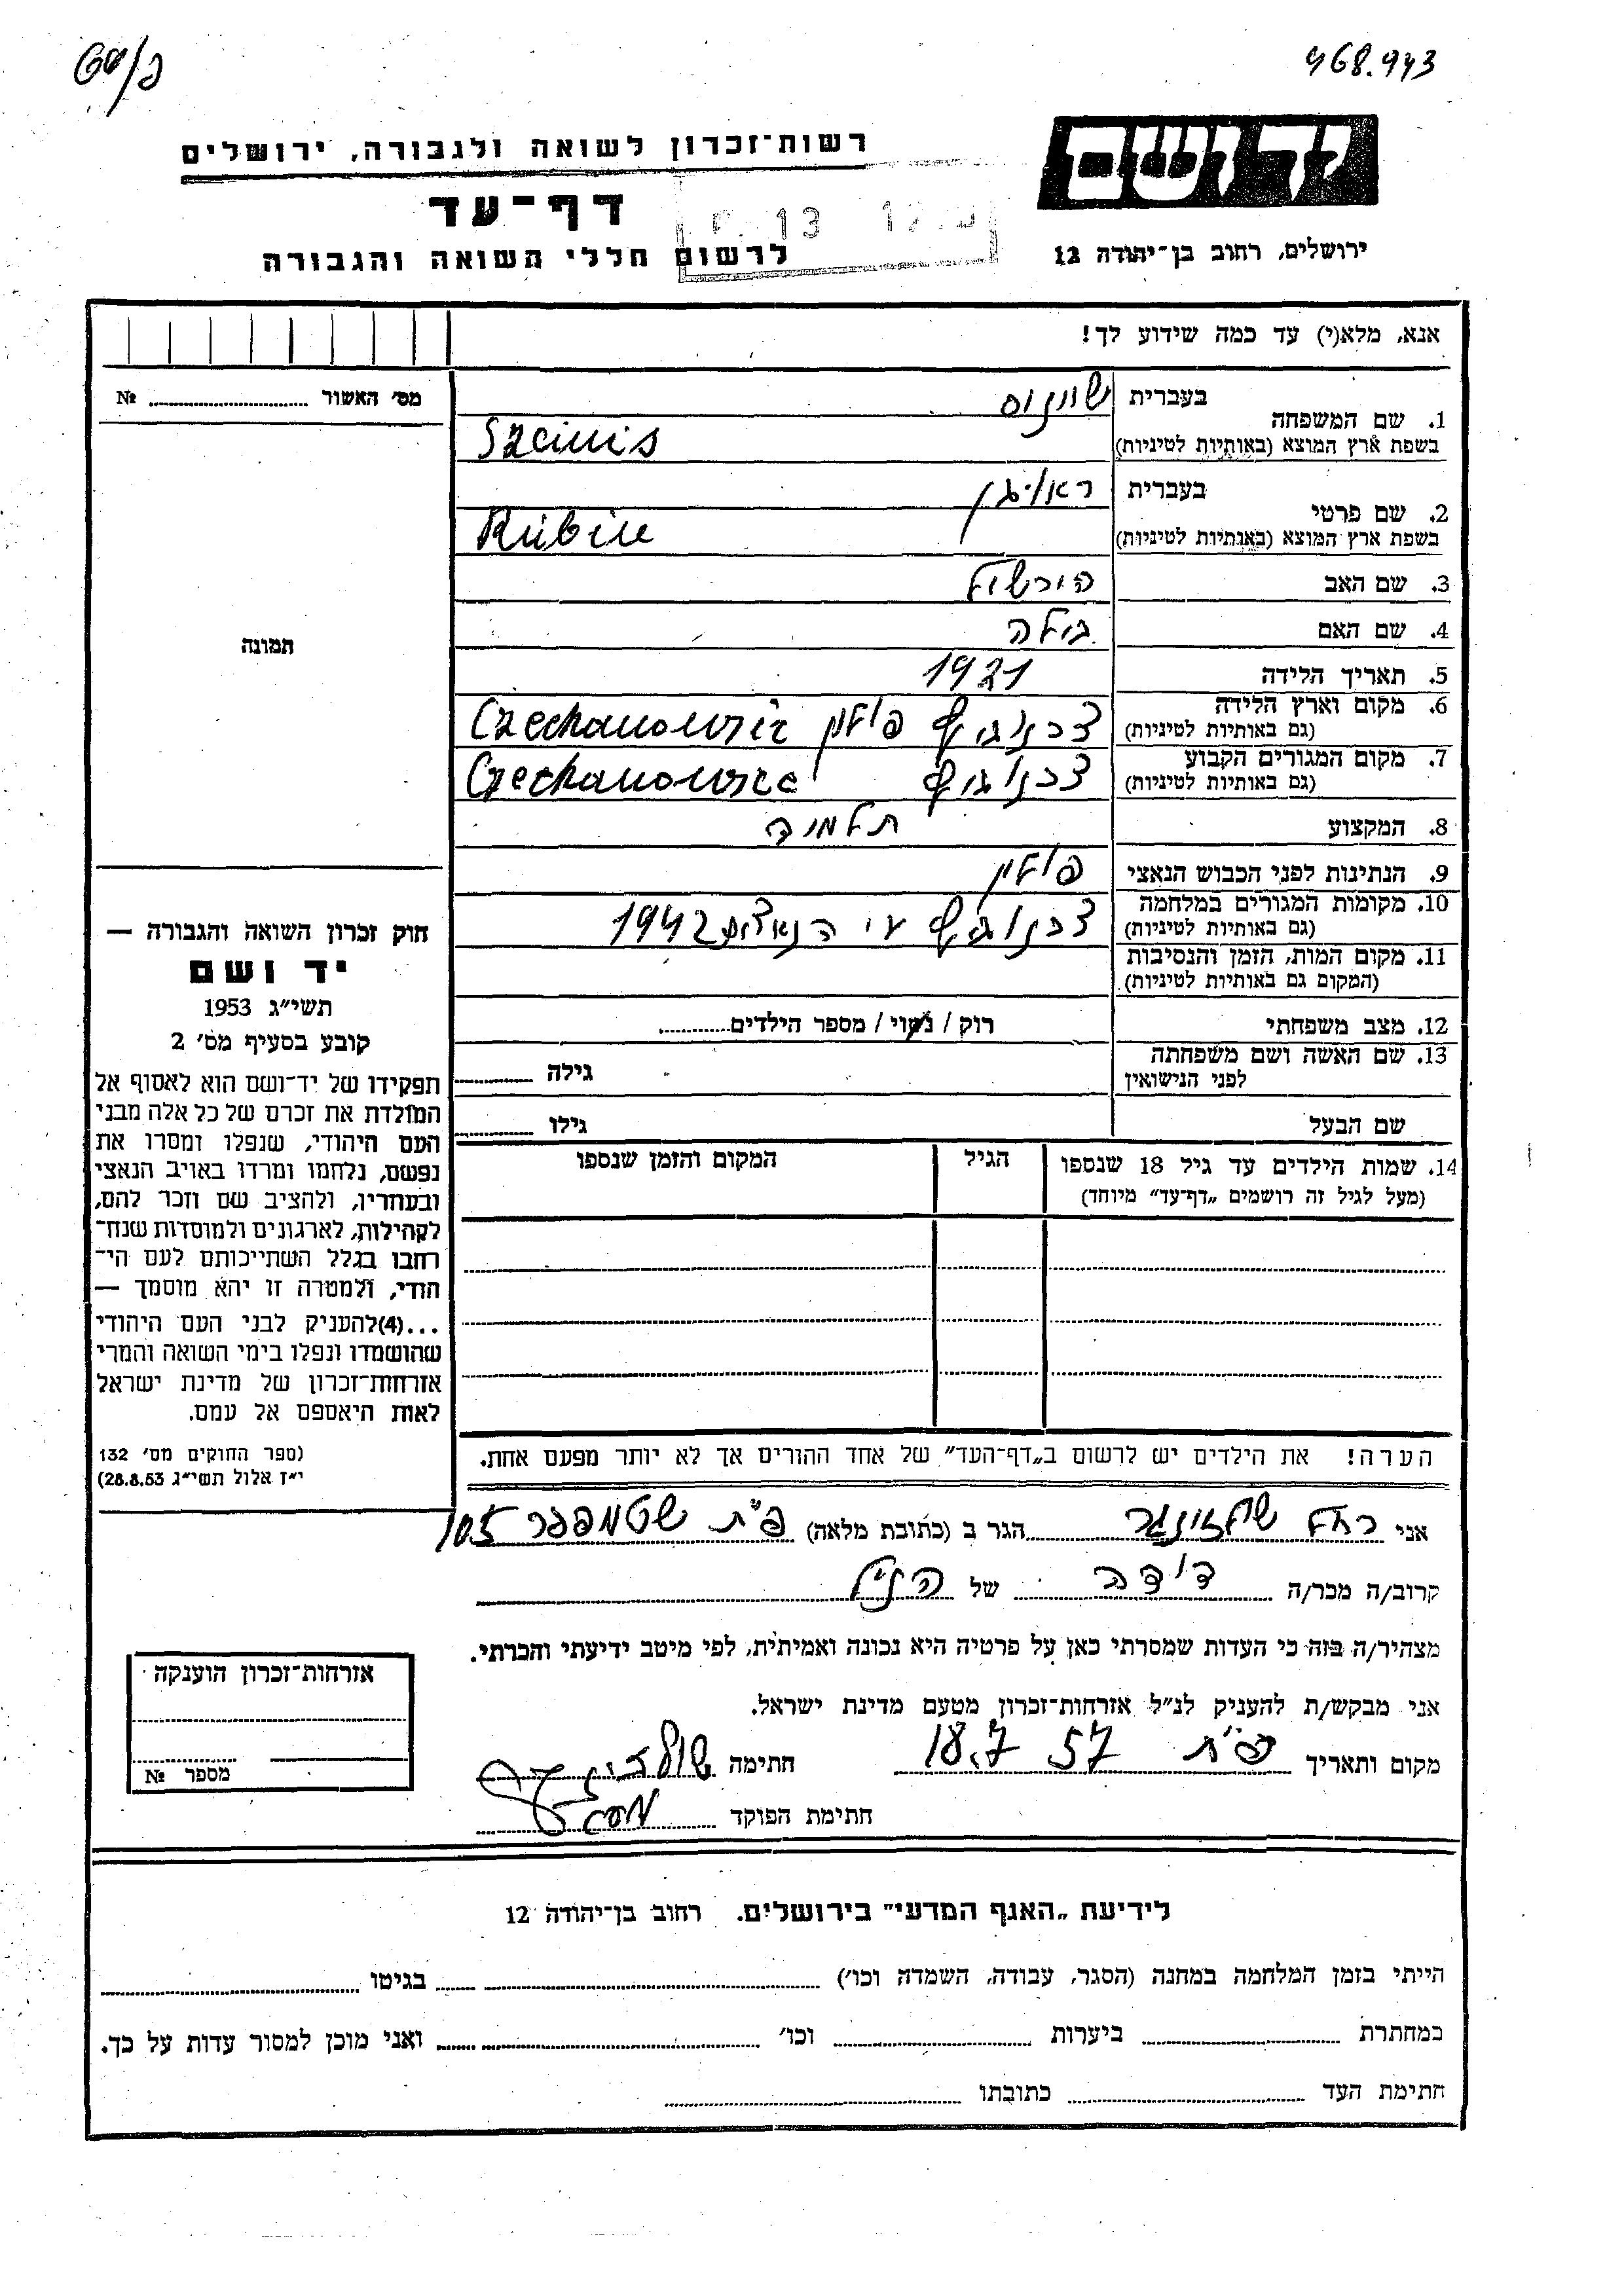 468.943
יד ושם
רשות־זכרון לשואה ולגבורה, ירושלים
דף־עד
לרשום חללי השואה והגבורה
13
ירושלים, רחוב בן־יהודה 12
אנא, מלא(י) עד כמה שידוע לך!
מס׳ האשור № 
1. שם המשפחה
בעברית
בשפת ארץ המוצא (באותיות לטיניות) Szcinis
2. שם פרטי
בעברית ראובן
בשפת ארץ המוצא (באותיות לטיניות) Rubin
3. שם האב הירשל
4. שם האם בילה
5. תאריך הלידה 1921
6. מקום וארץ הלידה
(גם באותיות לטיניות) פולין
7. מקום המגורים הקבוע
(גם באותיות לטיניות)
8. המקצוע תלמיד
9. הנתינות לפני הכבוש הנאצי פולין
10. מקומות המגורים במלחמה
(גם באותיות לטיניות) ע״י הנאצים 1942
11. מקום המות, הזמן והנסיבות
(המקום גם באותיות לטיניות)
12. מצב משפחתי רוק / נשוי / מספר הילדים
13. שם האשה ושם משפחתה
לפני הנישואין
גילה
שם הבעל
גילו
14. שמות הילדים עד גיל 18 שנספו
(מעל לגיל זה רושמים „דף־עד” מיוחד)
הגיל
המקום והזמן שנספו
הערה! את הילדים יש לרשום ב„דף־העד” של אחד ההורים אך לא יותר מפעם אחת.
תמונה
חוק זכרון השואה והגבורה —
יד ושם
תשי״ג 1953
קובע בסעיף מס׳ 2
תפקידו של יד־ושם הוא לאסוף אל
המולדת את זכרם של כל אלה מבני
העם היהודי, שנפלו ומסרו את
נפשם, נלחמו ומרדו באויב הנאצי
ובעוזריו, ולהציב שם וזכר להם,
לקהילות, לארגונים ולמוסדות שנח־
רבו בגלל השתייכותם לעם הי־
הודי, ולמטרה זו יהא מוסמך —
...(4)להעניק לבני העם היהודי
שהושמדו ונפלו בימי השואה והמרי
אזרחות־זכרון של מדינת ישראל
לאות היאספם אל עמם.
(ספר החוקים מס׳ 132
י״ז אלול תשי״ג 28.8.53)
אני רחל הגר ב (כתובת מלאה) פ״ת שטמפפר
קרוב/ה מכר/ה דודה של הנ״ל
מצהיר/ה בזה כי העדות שמסרתי כאן על פרטיה היא נכונה ואמיתית, לפי מיטב ידיעתי והכרתי.
אני מבקש/ת להעניק לנ״ל אזרחות־זכרון מטעם מדינת ישראל.
מקום ותאריך פ״ת 18.7 57 חתימה
חתימת הפוקד
אזרחות־זכרון הוענקה
מספר №
לידיעת „האגף המדעי” בירושלים. רחוב בן־יהודה 12
הייתי בזמן המלחמה במחנה (הסגר, עבודה, השמדה וכו׳) בגיטו
במחתרת ביערות וכו׳ ואני מוכן למסור עדות על כך.
חתימת העד כתובתו